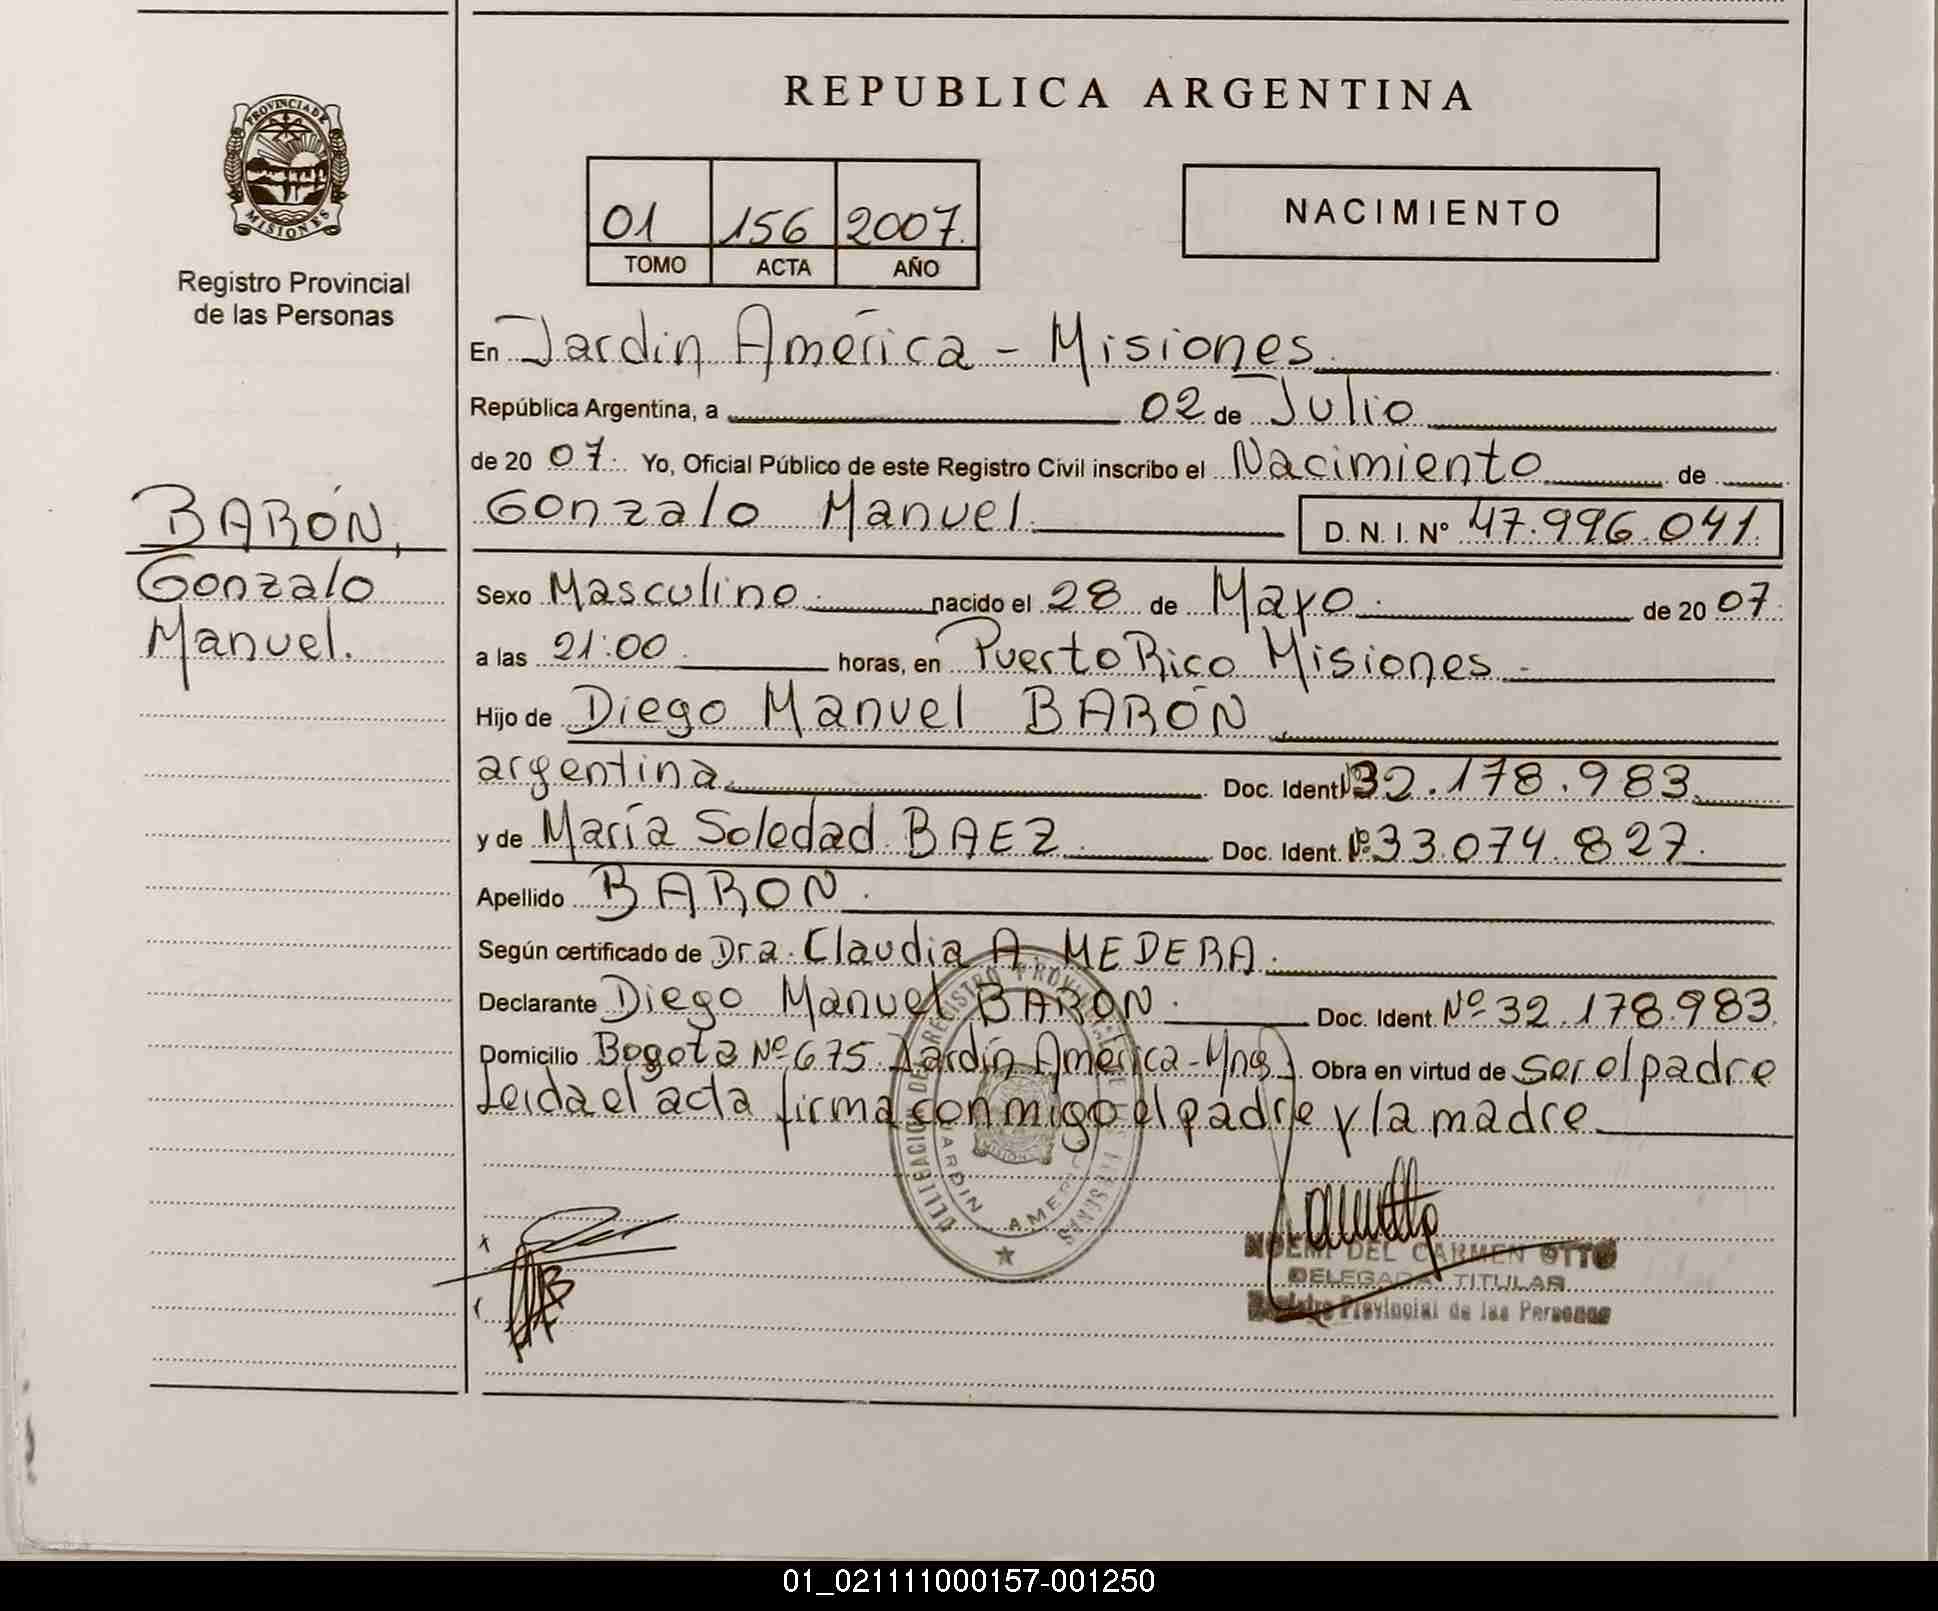 REPUBLICA ARGENTINA
PROVINCIA DE
MISIONES
Registro Provincial
de las Personas
01 156 2007.
TOMO ACTA AÑO
NACIMIENTO
En Jardín América - Misiones.
República Argentina, a 02 de Julio
de 20 07. Yo, Oficial Público de este Registro Civil inscribo el Nacimiento de
BARÓN,
Gonzalo
Manuel.
Gonzalo Manuel. D. N. I. Nº 47.996.041.
Sexo Masculino. nacido el 28 de Mayo. de 20 07.
a las 21:00. horas, en Puerto Rico Misiones.
Hijo de Diego Manuel BARÓN
argentina. Doc. Ident. 32.178.983.
y de María Soledad BAEZ. Doc. Ident. Nº 33.074.827.
Apellido BARON.
Según certificado de Dra. Claudia A MEDERA.
Declarante Diego Manuel BARON. Doc. Ident. Nº 32.178.983.
Domicilio Bogota Nº 675. Jardín América - Mnes. Obra en virtud de ser el padre
Leida el acta firma conmigo el padre y la madre.
DELEGACION DEL REGISTRO PROVINCIAL DE LAS PERSONAS
JARDIN AMERICA
MISIONES
NOEMI DEL CARMEN OTTO
DELEGADA TITULAR
Registro Provincial de las Personas
01_021111000157-001250